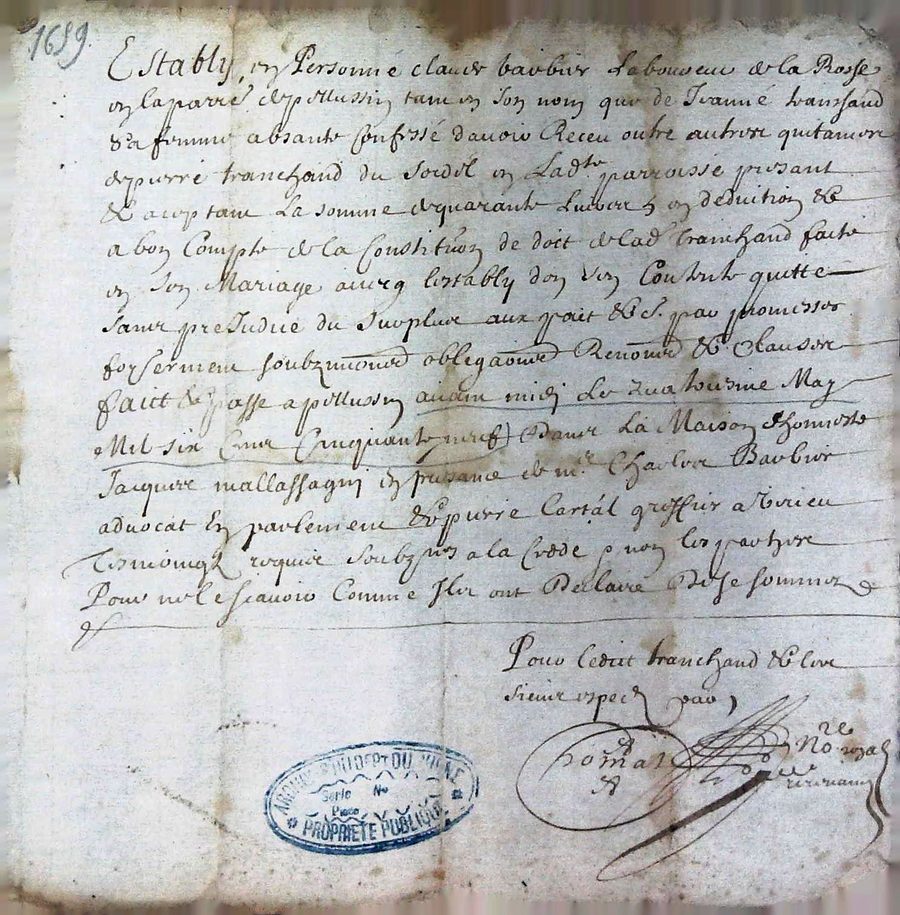 1659.
Establÿ en Personne claude barbier Laboureur de la Rosse
en la parre depellussin tam en son nom que de Jeanne tranchand
sa femme absante Confesse davoir Receu outre autres quitances
de pierre tranchand du Soidel en Ladte parroisse presant
& aceptant La somme de quarante Livres en deduction &
a bon Compte de la Constituon de dot de lad tranchand faite
en son Mariage avecq lestably dont sen Contente quitte
sans prejudice du surplus aux pait & par promesses
for serment soubzmions obligaons Renons & clauses
faict & passe a pellussin avam midi Le quatorzieme May
Mil six Cens Cinquante neuf) & dans La Maison dhonneste
Jacques mallassagni en presance de mre Charles Barbier
advocat En parlement & pierre Cartal greffier a Virieu
Tesmoingz requis soubznes a la Cede & non les parties
Pour ne le scavoir Comme Ilz ont Declaire De Ce sommez
Pour ledict tranchand & les
siens exped par
Thomas
nore royal
ARCHIVES DU DEPT DU RHONE
Serie No
Piece
PROPRIETE PUBLIQUE